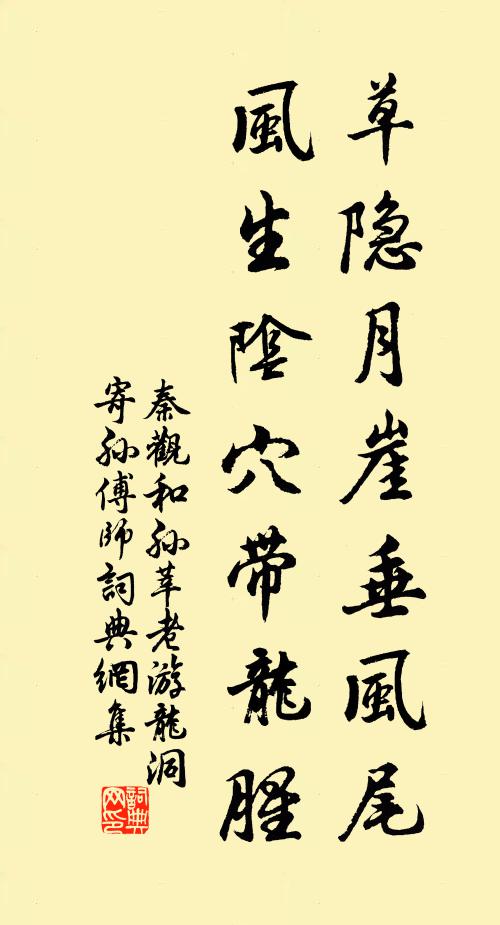 草隐月崖垂風尾
風生陰穴帶龍腥
秦觀和孫莘老游龍洞
寄孫傅師詞典網集
詞典網印